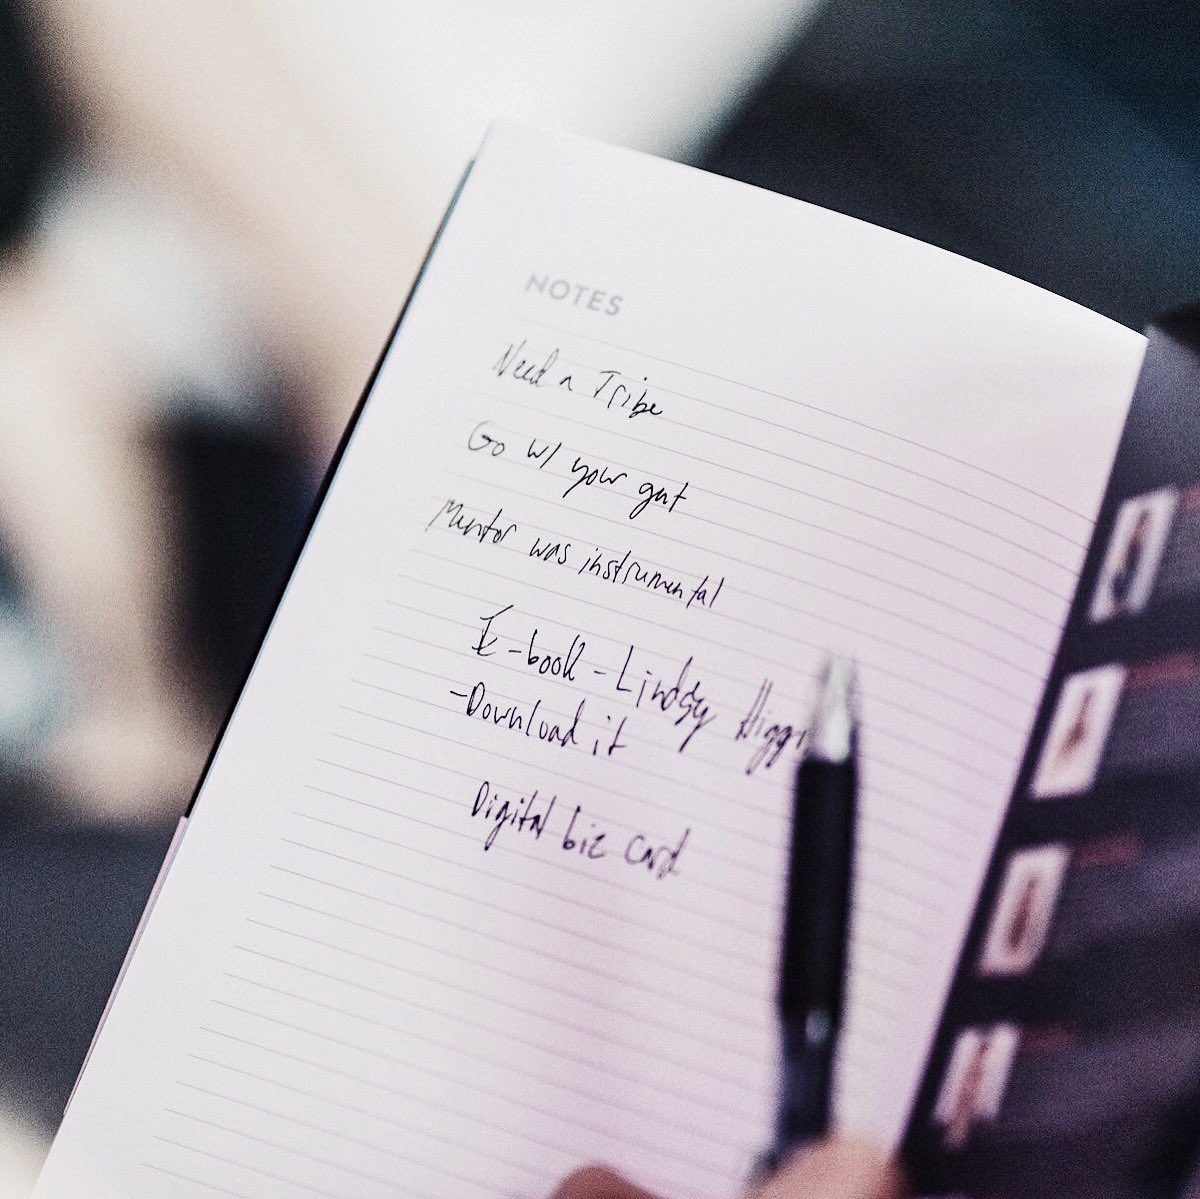 NOTES
Need a Tribe
Go w/ your gut
Mentor was instrumental
E-book - Lindsy
- Download it
Digital biz card